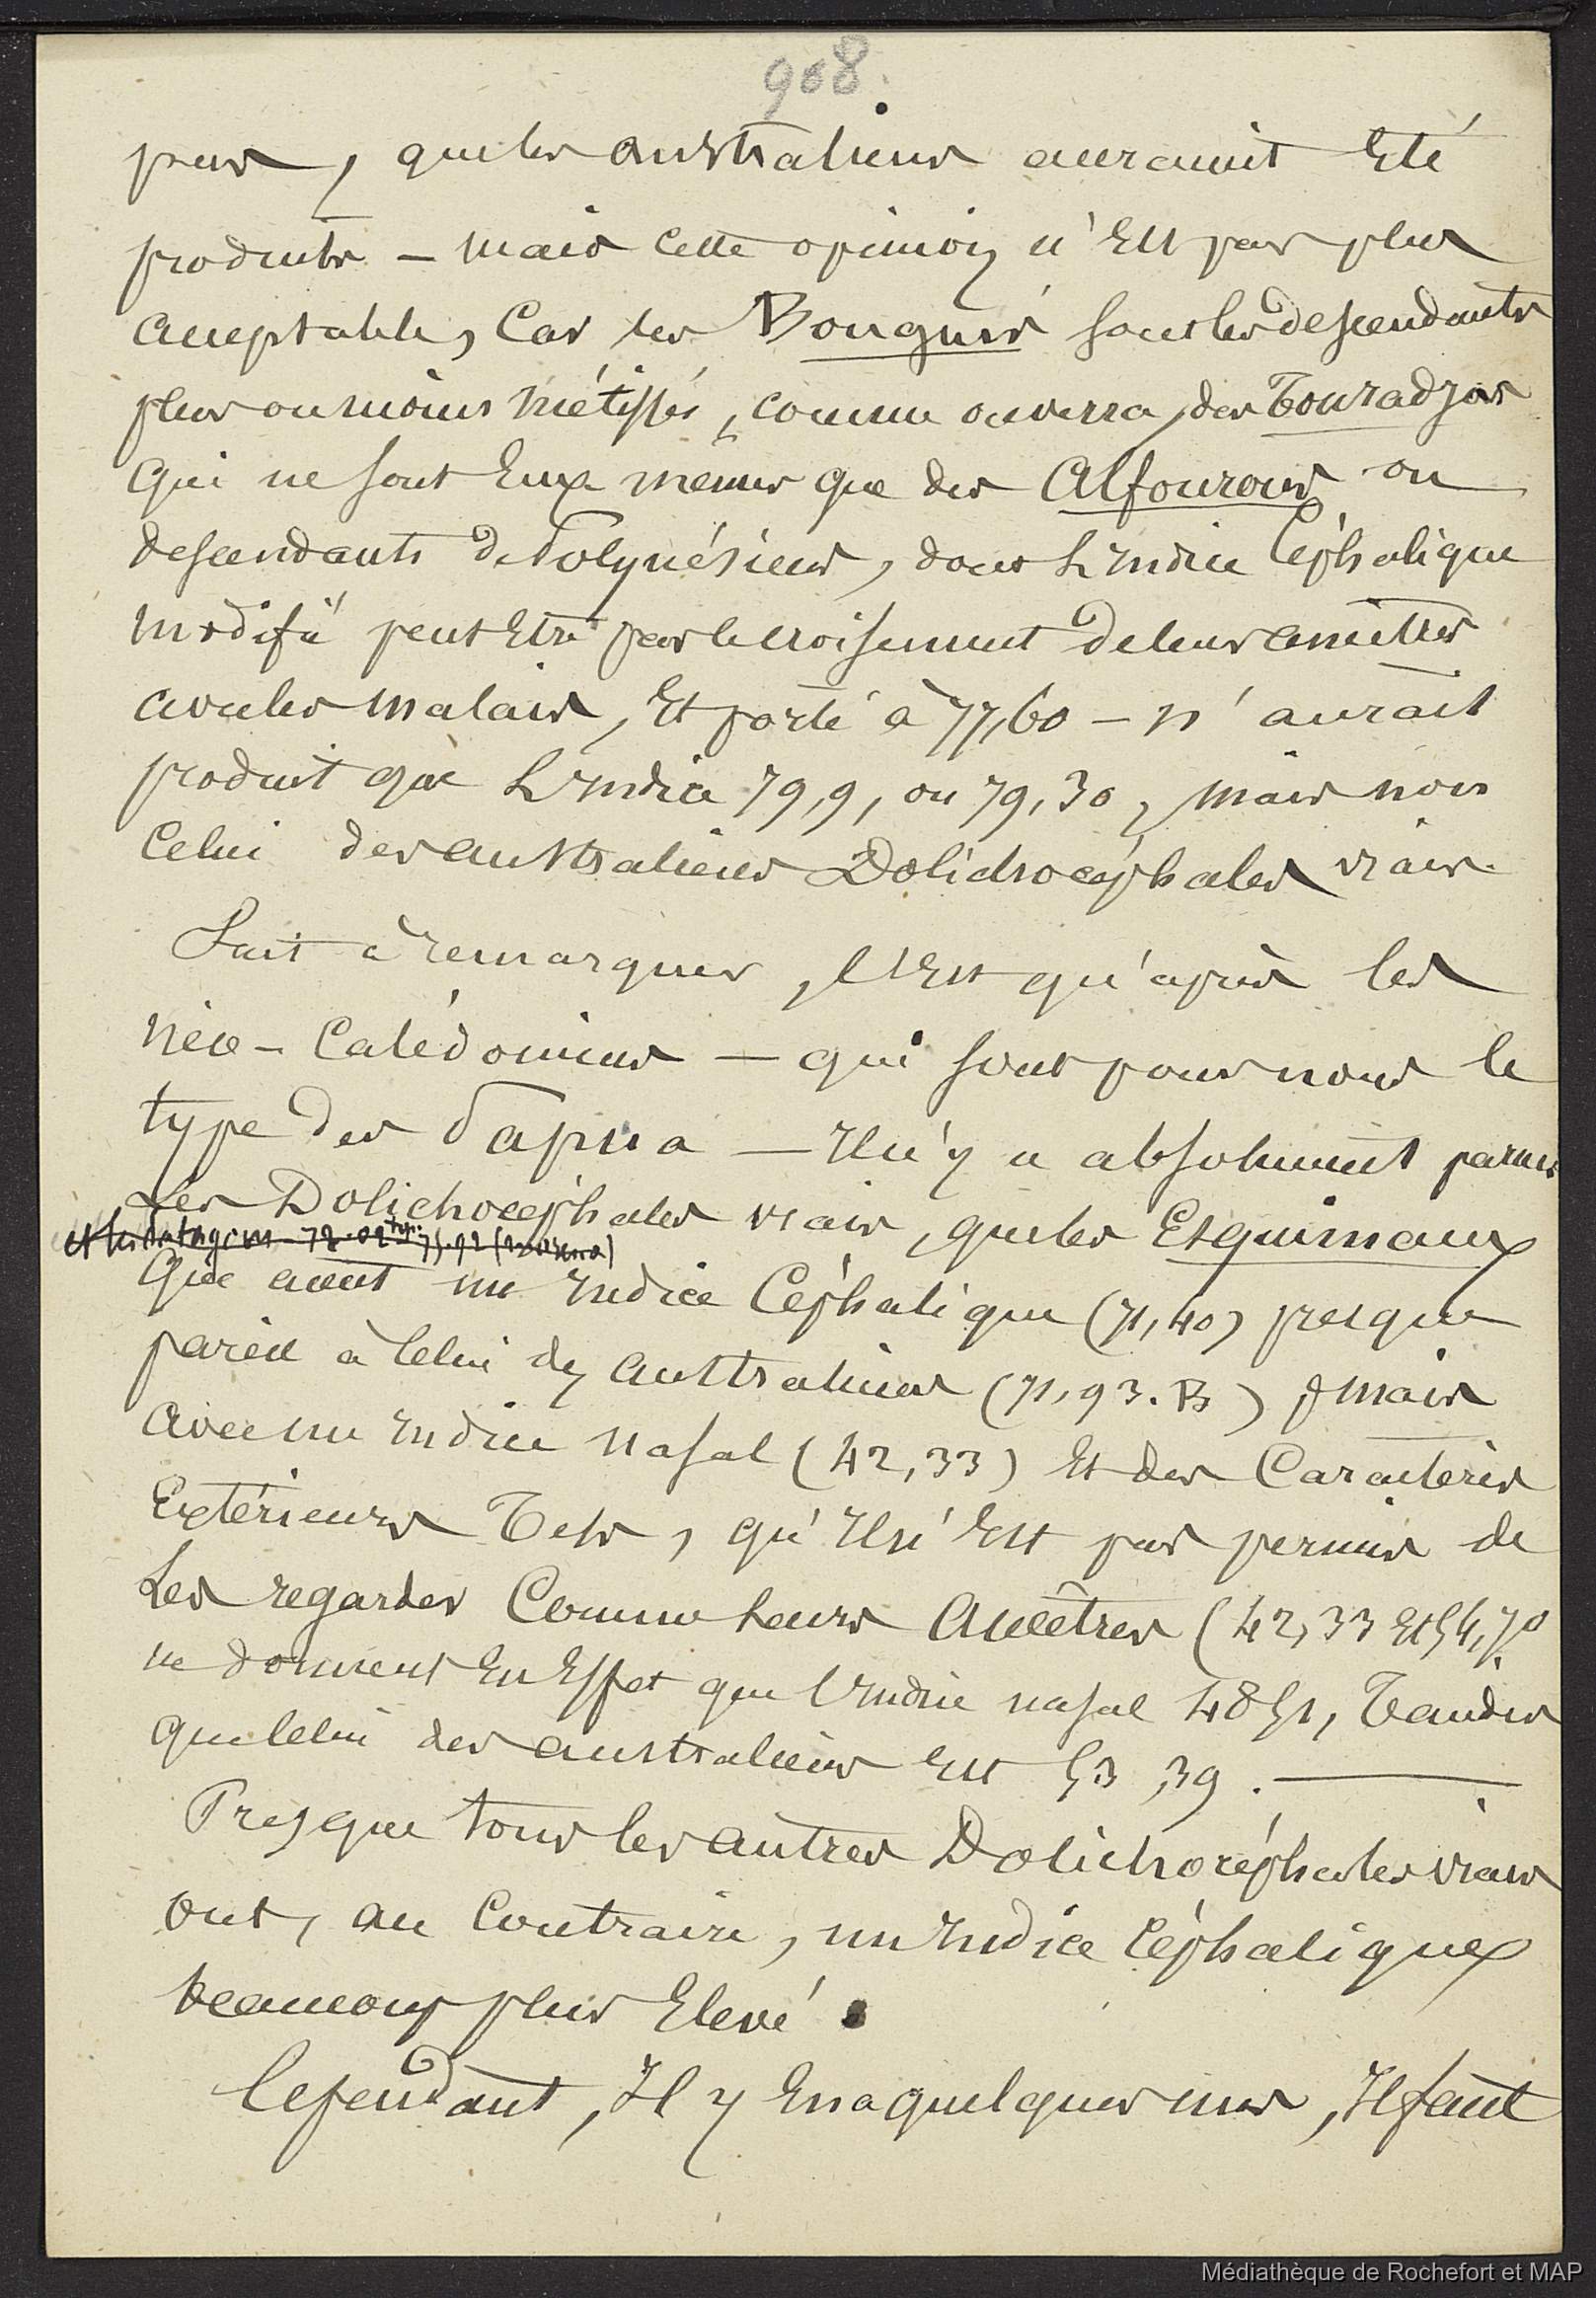 908.
purs, que les australiens auraient Eté
produits – mais cette opinion n'Est pas plus
acceptable, Car les Bouguis sont les descendants
plus ou moins métissés, comme on verra, des Touradjas
qui ne sont Eux mêmes que des Alfourous ou
descendants de Polynésiens, dont L'indice Céphalique
modifié peut Etre par le croisement de leurs ancêtres
avec les malais, Et porté à 77,60 – n'aurait
produit que L'indice 79,9, ou 79,30, mais non
Celui des australiens Dolichocéphales vrais.
Fait à remarquer, C'Est qu'après les
néo-Calédoniens – qui sont pour nous le
type des Papua – Il n'y a absolument parmi
Les Dolichocéphales vrais, que les Esquimaux
et les 72.02 75.92
Que aient un Indice Céphalique (71,40) presque
pareil à Celui des australiens (71,93. B), mais
avec un Indice nasal (42,33) Et des Caractères
Extérieurs Tels, qu'Il n'Est pas permis de
Les regarder Comme Leurs Ancêtres (42,33 Et 54,70
ne donnent En Effet que l'Indice nasal 48 51, Tandis
que Celui des australiens Est 53,39.
Presque tous les autres Dolichocéphales vrais
Ont, au Contraire, un Indice Céphalique
beaucoup plus Elevé.
Cependant, Il y En a quelques uns, Il faut
Médiathèque de Rochefort et MAP